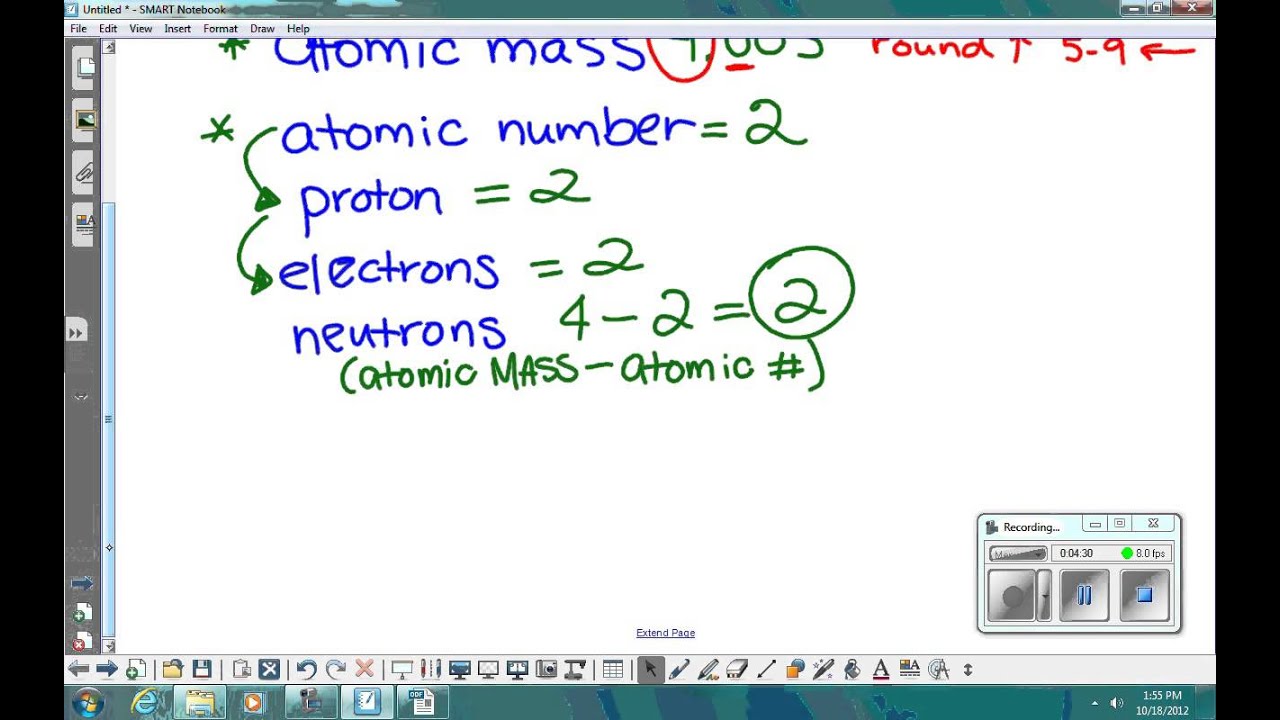 Untitled * - SMART Notebook
File Edit View Insert Format Draw Help
* atomic mass 4.003 round ↑ 5-9 ←
* atomic number = 2
proton = 2
electrons = 2
neutrons 4 - 2 = 2
(atomic MASS - atomic #)
Recording...
0:04:30 8.0 fps
Extend Page
1:55 PM
10/18/2012